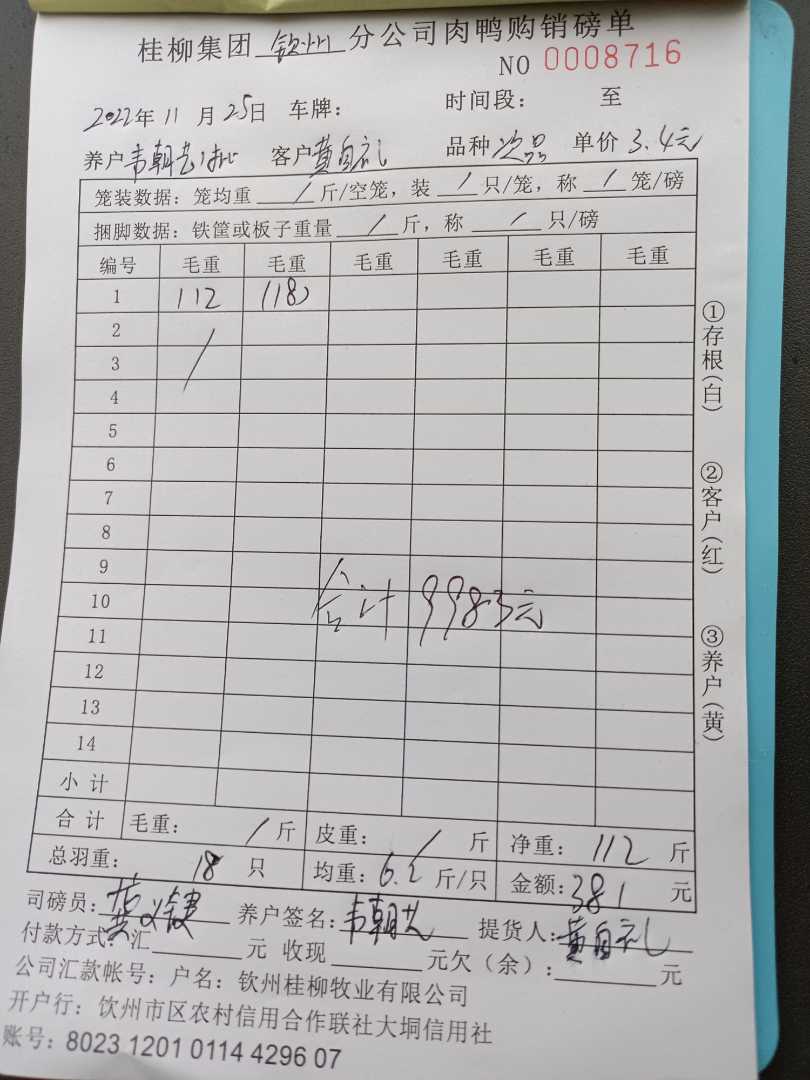 桂柳集团 钦州 分公司肉鸭购销磅单
NO 0008716
2022年 11 月 25日 车牌: 时间段: 至
养户 韦朝艺 客户 黄自礼 品种 次品 单价 3.4元
笼装数据: 笼均重 / 斤/空笼, 装 / 只/笼, 称 / 笼/磅
捆脚数据: 铁筐或板子重量 / 斤, 称 / 只/磅
编号 毛重 毛重 毛重 毛重 毛重 毛重
1 112 (18)
2
3 /
4
5
6
7
8
9
10 合计 9983元
11
12
13
14
小 计
合 计 毛重: / 斤 皮重: / 斤 净重: 112 斤
总羽重: 18 只 均重: 6.2 斤/只 金额: 381 元
司磅员: 养户签名: 韦朝艺 提货人: 黄自礼
付款方式: 汇 元 收现 元欠(余): 元
公司汇款帐号: 户名: 钦州桂柳牧业有限公司
开户行: 钦州市区农村信用合作联社大垌信用社
账号: 8023 1201 0114 4296 07
①存根(白)
②客户(红)
③养户(黄)